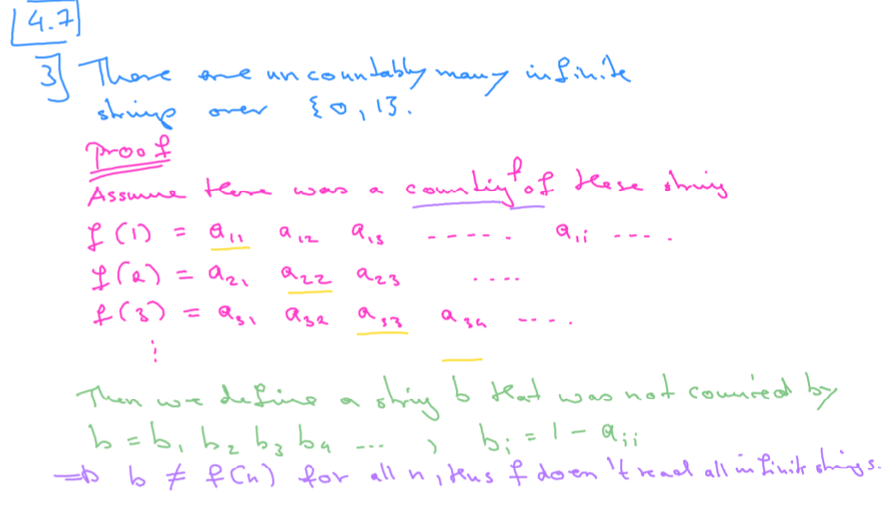 4.7
3] There are uncountably many infinite
strings over {0,1}.
Proof
Assume there was a counting f of these strings
f(1) = a₁₁ a₁₂ a₁₃ ----- a₁ᵢ ----
f(2) = a₂₁ a₂₂ a₂₃ ....
f(3) = a₃₁ a₃₂ a₃₃ a₃₄ ----
⋮
Then we define a string b that was not counted by
b = b₁ b₂ b₃ b₄ ... , bᵢ = 1 - aᵢᵢ
⇒ b ≠ f(n) for all n, thus f doesn't read all infinite strings.